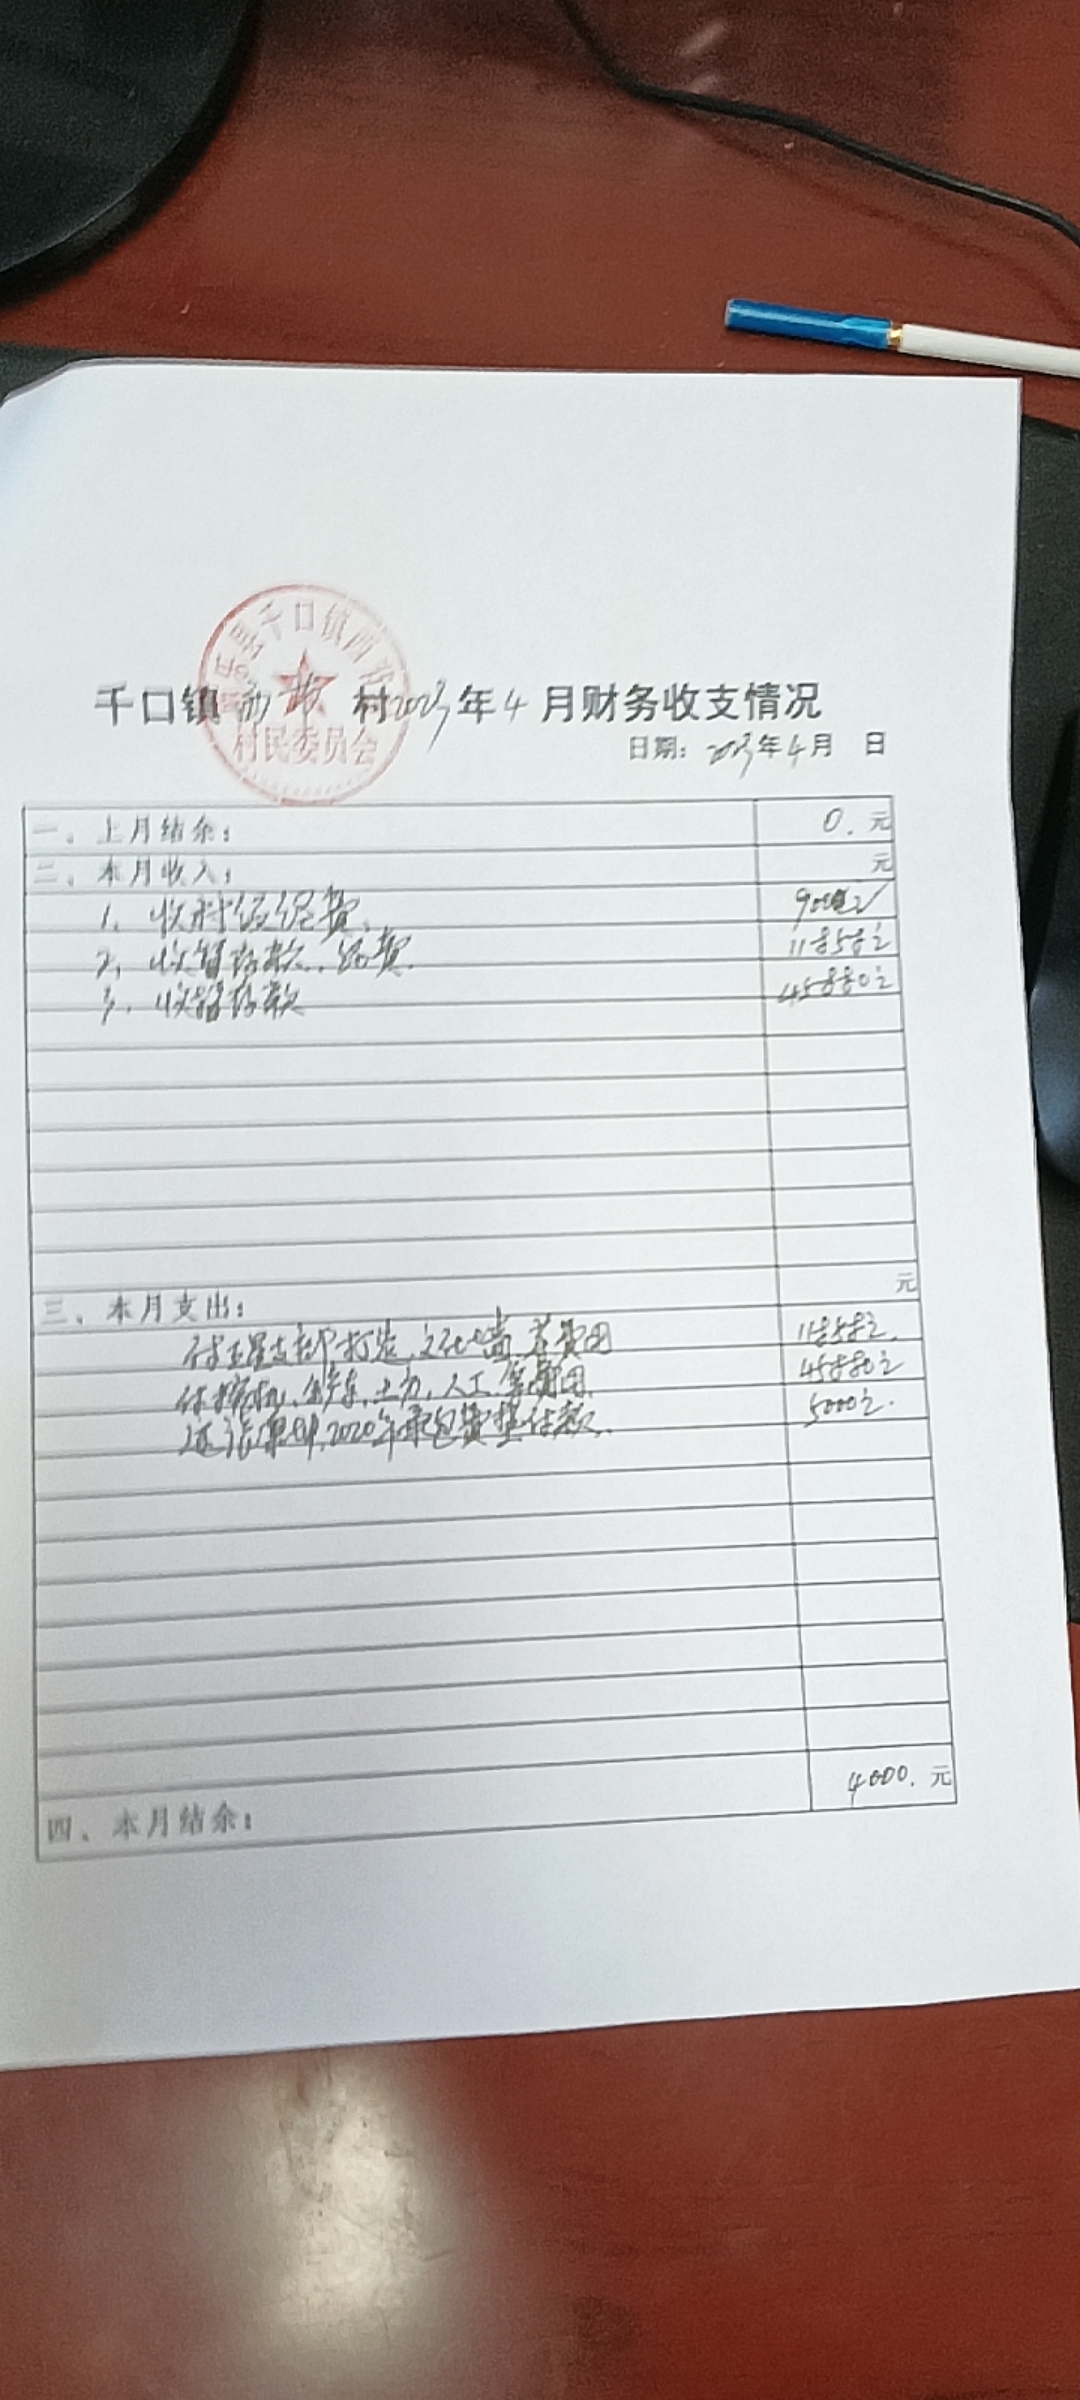 千口镇西 村2023年4月财务收支情况
村民委员会
日期：2023年4月 日
一、上月结余： 0.元
二、本月收入： 元
1、收村级经费、 9000元
2、收暂存款、经费 11858元
3、收暂存款 45880元
三、本月支出： 元
付五星支部打造、文化墙、等费用 11858元.
付挖机、铲车、土方、人工、等费用. 45880元
还张 2020年承包费垫付款. 5000元.
四、本月结余： 4000.元